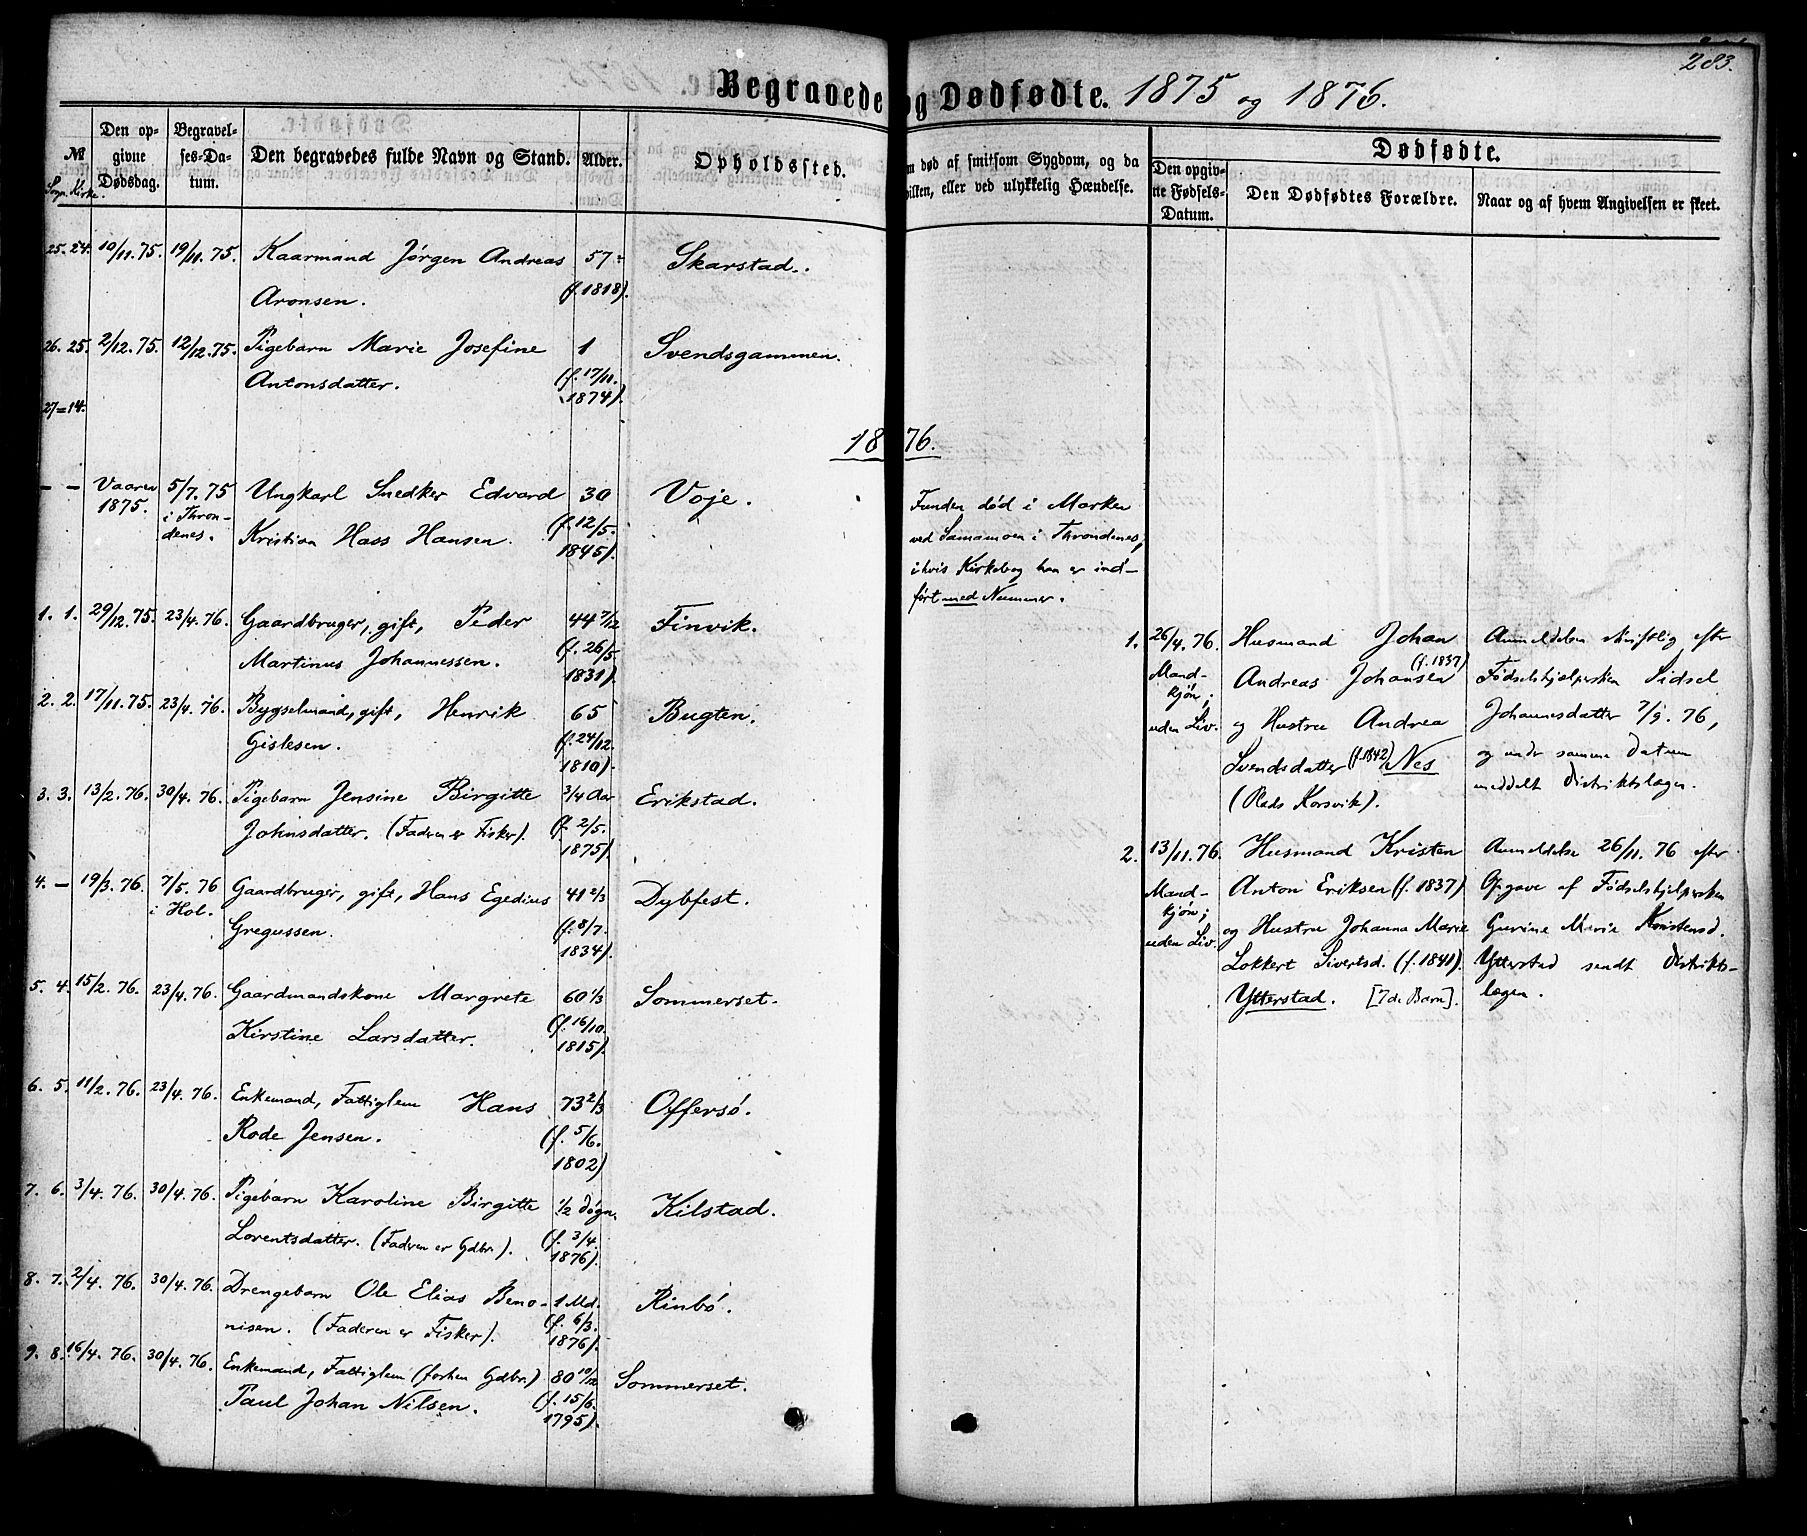 283.
Begravede og Dødfødte. 1875 og 1876.
№
Sogn. Kirke.
Den op-
givne
Dødsdag.
Begravel-
ses-Da-
tum.
Den begravedes fulde Navn og Stand.
Alder.
Opholdssted.
m død af smitsom Sygdom, og da
ilken, eller ved ulykkelig Hændelse.
Dødfødte.
Den opgiv-
ne Fødsels-
Datum.
Den Dødfødtes Forældre.
Naar og af hvem Angivelsen er skeet.
25. 24. 10/11. 75. 19/11. 75. Kaarmand Jørgen Andreas 57 Skarstad.
Aronsen. (f. 1818).
26. 25. 2/12. 75. 12/12. 75. Pigebarn Marie Josefine 1 Svendsgammen.
Antonsdatter. (f. 17/11.
1874).
27=14.
1876.
- - Vaaren 5/7. 75 Ungkarl Snedker Edvard 30 Voje.
1875. i Thron-
denes. Kristian Hass Hansen. (f. 12/5.
1845).
Funden død i Marken
ved Samamoen i Throndenes,
i hvis Kirkebog han er ind-
ført med Nummer.
1. 1. 29/12. 75. 23/4. 76. Gaardbruger, gift, Peder 44 7/12 Finvik.
Martinus Johannessen. (f. 26/5
1831).
2. 2. 17/11. 75. 23/4. 76. Bygselmand, gift, Henrik 65 Bugten.
Gislesen. (f. 24/12.
1810).
3. 3. 13/2. 76. 30/4. 76. Pigebarn Jensine Birgitte 3/4 Aar Erikstad.
Johnsdatter. (Faderen er Fisker). (f. 2/5.
1875).
4. - 19/3. 76. 7/5. 76 Gaardbruger, gift, Hans Egedius 41 2/3 Dybfest.
i Hol. Gregussen. (f. 8/7.
1834).
5. 4. 15/2. 76. 23/4. 76. Gaardmandskone Margrete 60 1/3 Sommerset.
Kirstine Larsdatter. (f. 16/10.
1815).
6. 5. 11/2. 76. 23/4. 76. Enkemand, Fattiglem Hans 73 2/3 Offersø.
Rode Jensen. (f. 5/6.
1802)
7. 6. 3/4. 76. 30/4. 76. Pigebarn Karoline Birgitte 1/2 Døgn. Kilstad.
Lorentsdatter. (Faderen er Gdbr.). (f. 3/4.
1876).
8. 7. 2/4. 76. 30/4. 76. Drengebarn Ole Elias Beno- 1 Md. Rinbø.
nisen. (Faderen er Fisker). (f. 6/3.
1876).
9. 8. 16/4. 76. 30/4. 76. Enkemand, Fattiglem (forhen Gdbr.) 80 10/12 Sommerset.
Paul Johan Nilsen. (f. 15/6.
1795).
1. 26/4. 76. Husmand Johan Anmeldelse skriftlig efter
Mand- Andreas Johansen (f. 1837) Fødselshjælpersken Sidsel
kjøn; og Hustru Andrea Johannesdatter 7/9. 76,
uden Liv. Svendsdatter (f. 1842) Nes og under samme Datum
(Plads Korsvik). meddelt Distriktslægen.
2. 13/11. 76. Husmand Kristen Anmeldelse 26/11. 76 efter
Mand- Anton Eriksen (f. 1837) Opgave af Fødselshjælpersken
kjøn; og Hustru Johanna Marie Gurine Marie Kristensd.
uden Liv. Lokkert Sivertsd. (f. 1841). Ytterstad sendt Distrikts-
Ytterstad. [7de Barn]. lægen.